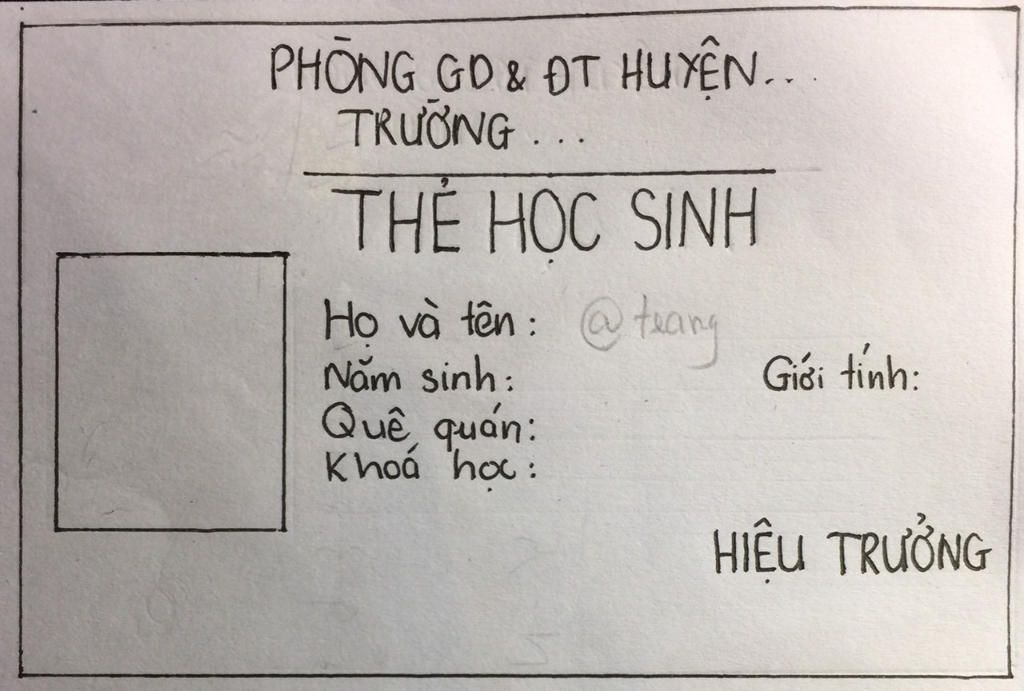 PHÒNG GD & ĐT HUYỆN...
TRƯỜNG ...
THẺ HỌC SINH
Họ và tên: @teang
Năm sinh: Giới tính:
Quê quán:
Khoá học:
HIỆU TRƯỞNG